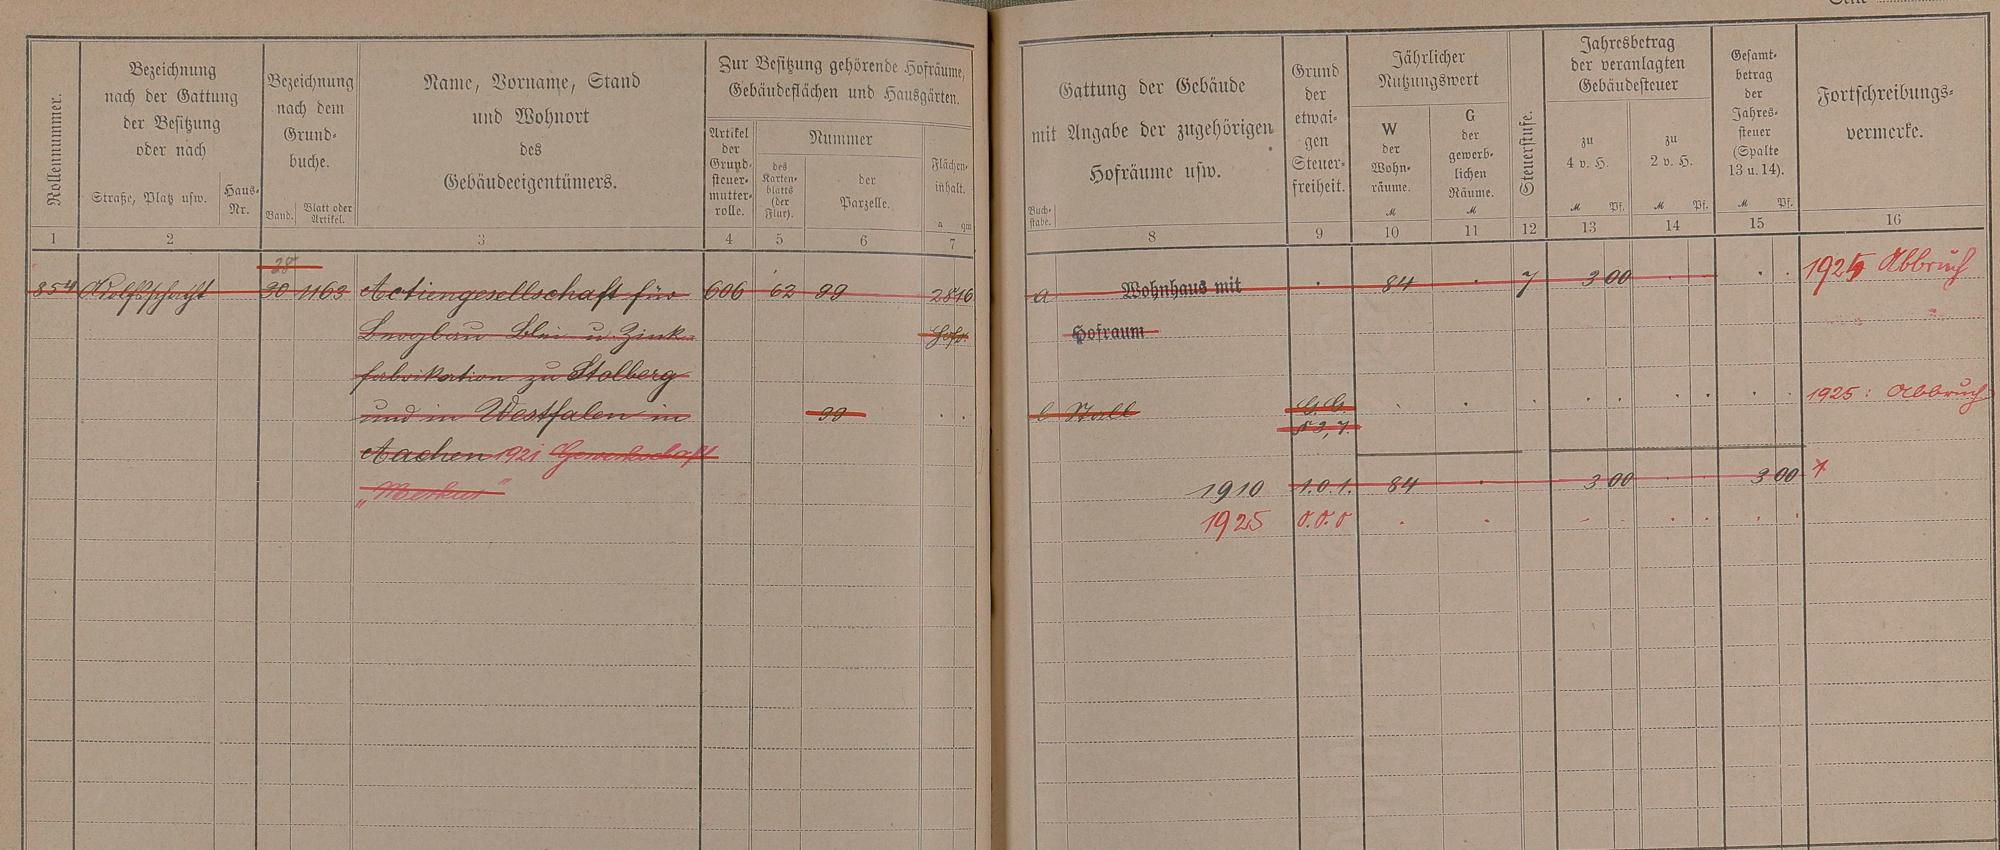 Seite
Rollennummer.
Bezeichnung
nach der Gattung
der Besitzung
oder nach
Straße, Platz usw.
Haus-
Nr.
Bezeichnung
nach dem
Grund-
buche.
Band.
Blatt oder
Artikel.
Name, Vorname, Stand
und Wohnort
des
Gebäudeeigentümers.
Zur Besitzung gehörende Hofräume,
Gebäudeflächen und Hausgärten.
Artikel
der
Grund-
steuer-
mutter-
rolle.
Nummer
des
Karten-
blatts
(der
Flur).
der
Parzelle.
Flächen-
inhalt.
a qm
1 2 3 4 5 6 7
28
854 Wolfsschacht 30 1163 Actiengesellschaft für 606 62 99 2846
Bergbau Blei u. Zink- Hofr.
fabrikation zu Stolberg
und in Westfalen in 99 . .
Aachen 1921 Gewerkschaft
"Merkur"
Gattung der Gebäude
mit Angabe der zugehörigen
Hofräume usw.
Buch-
stabe.
Grund
der
etwai-
gen
Steuer-
freiheit.
Jährlicher
Nutzungswert
W
der
Wohn-
räume.
M
G
der
gewerb-
lichen
Räume.
M
Steuerstufe.
Jahresbetrag
der veranlagten
Gebäudesteuer
zu
4 v. H.
M Pf.
zu
2 v. H.
M Pf.
Gesamt-
betrag
der
Jahres-
steuer
(Spalte
13 u. 14).
M Pf.
Fortschreibungs-
vermerke.
8 9 10 11 12 13 14 15 16
a Wohnhaus mit . 84 . 7 3 00 . . . . 1925 Abbruch
Hofraum
b Stall G.G. . . . . . . . . 1925: Abbruch
§ 3,7.
1910 1.0.1. 84 . 3 00 . . 3 00
1925 0.0.0 . . . . . . . .